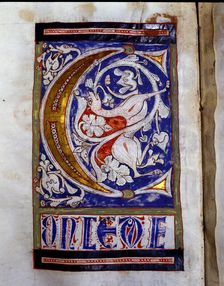 C
ONCEDE